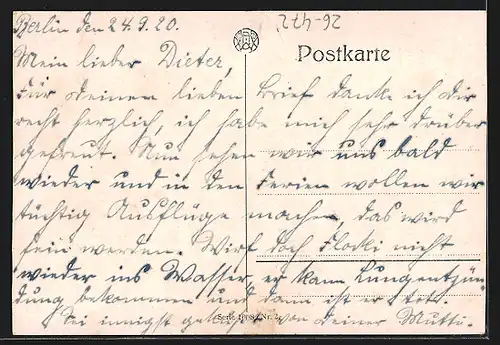 Berlin den 24.9.20.
26-472
Postkarte
Mein lieber Dieter,
Für deinen lieben Brief danke ich dir
recht herzlich, ich habe mich sehr drüber
gefreut. Nun sehen wir uns bald
wieder und in den Ferien wollen wir
tüchtig Ausflüge machen, das wird
fein werden. Wirf doch Flocki nicht
wieder ins Wasser, er kann Lungentzün
dung bekommen und dann ist er
Sei innigst geküsst von deiner Mutti.
Serie Nr. 2